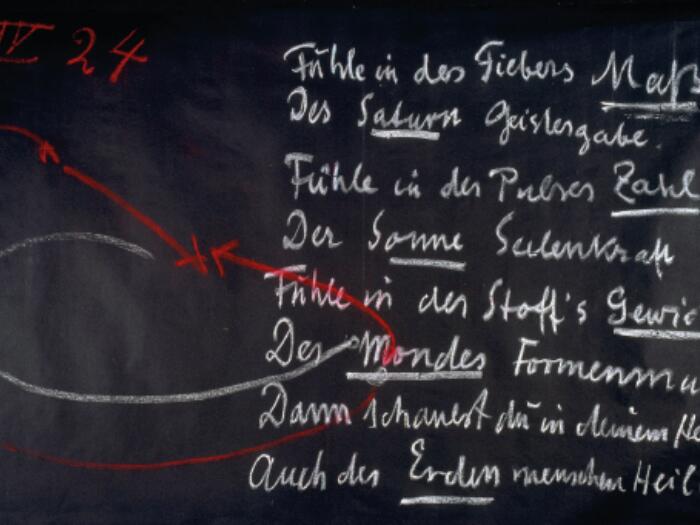 IV 24
Fühle in des Fiebers Maß
Des Saturn Geistesgabe.
Fühle in des Pulses Zahl
Der Sonne Seelenkraft
Fühle in des Stoff's Gewic
Des Mondes Formenma
Dann schauest du in deinem He
Auch des Erden menschen Heil